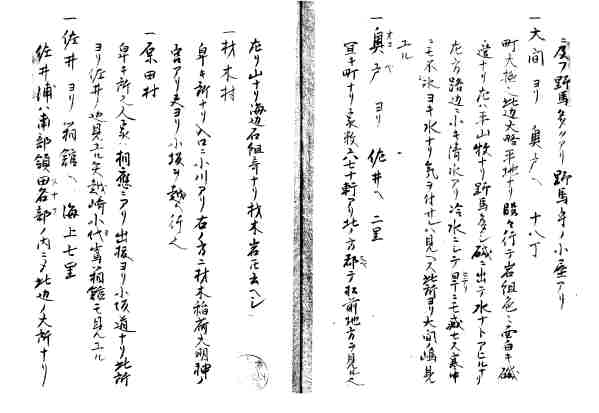 ニ度フ野馬多クアリ野馬牛ノ小屋アリ
一大間ヨリ 奥戸ヘ 十八丁
町大極ヘ此辺大略平地ナリ 段々行テ岩組色ミ面白キ磯
辺ナリ左ハ平山牧ナリ野馬多ク磯ニ出テ水ナトアヒルナリ
左方路辺ニ小キ清水アリ冷水ニシテ旱ニモ減セス寒中
ニモ不氷ヨキ水ナリ気ヲ付サレハ見ヘス此所ヨリ大間ノ嶋見
ユル
一奥戸 ヨリ 佐井ヘ 二里
宜キ町ナリ家数六七十軒アリ北ノ方 テ松前地方ヲ見ル
左リ山ナリ海辺石組奇ナリ材木岩ト云ヘシ
一材木村
卑キ所ナリ入口ニ小川アリ右ノ方ニ材木稲荷大明神ノ
宮アリ夫ヨリ小坂ヲ越ヘ行ク
一原田村
卑キ所ヘ人家相應ニアリ出放ヨリ小坂道ナリ此所
ヨリ佐井ノ地見エル矢越崎小代 箱館モ見ユル
一佐井 ヨリ 箱館ヘ 海上七里
佐井浦ハ南部領田名部ノ内ニテ此辺ノ大所ナリ